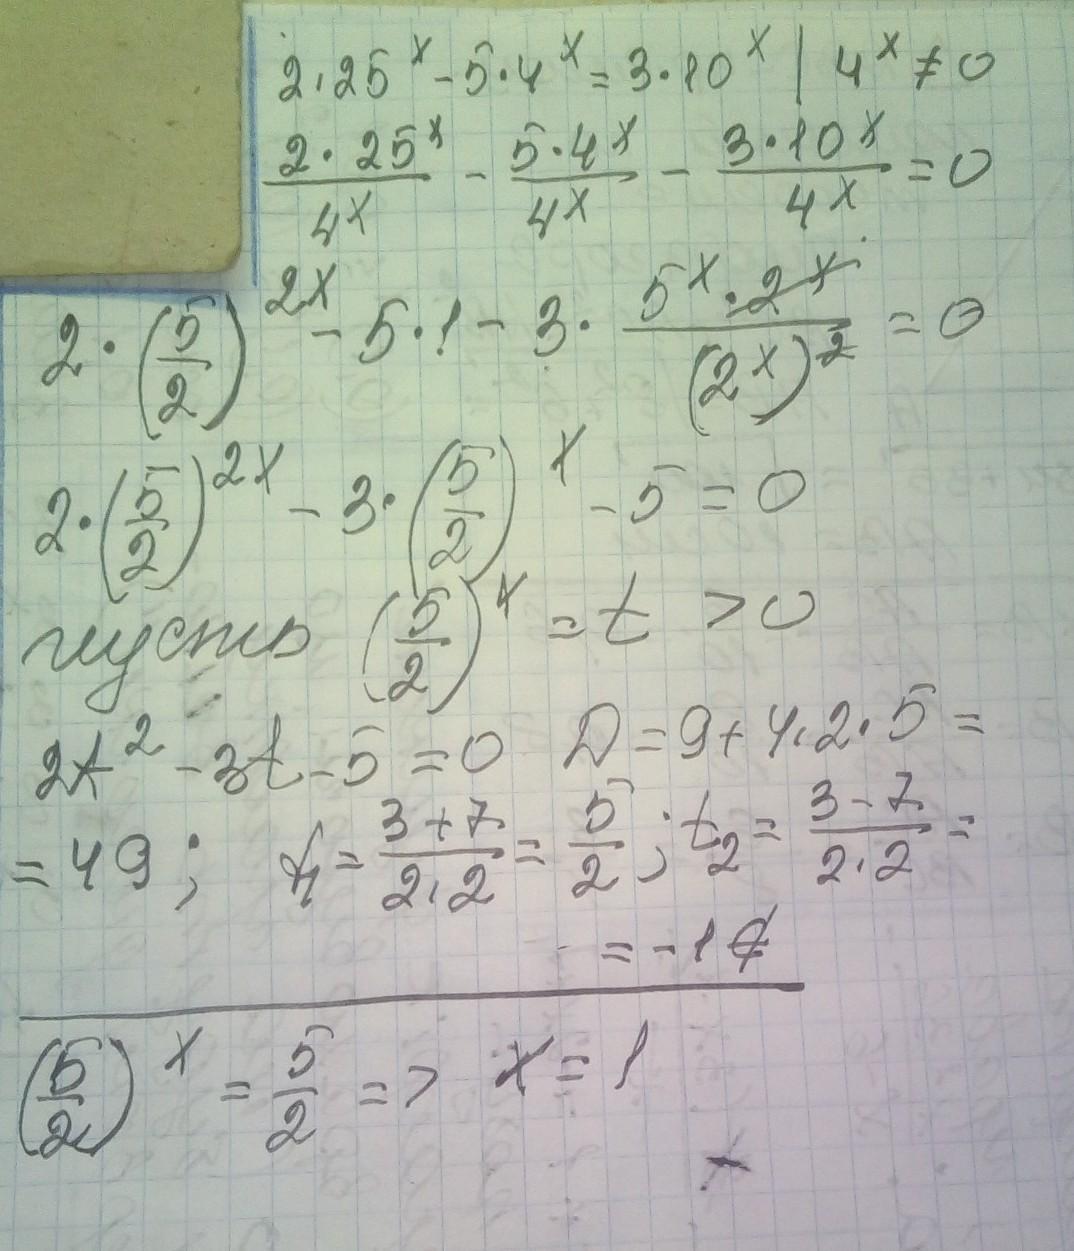 2·25^x - 5·4^x = 3·10^x | 4^x ≠ 0
(2·25^x)/(4^x) - (5·4^x)/(4^x) - (3·10^x)/(4^x) = 0
2·(5/2)^(2x) - 5·1 - 3·(5^x·2^x)/((2^x)^2) = 0
2·(5/2)^(2x) - 3·(5/2)^x - 5 = 0
пусть (5/2)^x = t > 0
2t^2 - 3t - 5 = 0 D = 9 + 4·2·5 =
= 49; t₁ = (3+7)/(2·2) = 5/2; t₂ = (3-7)/(2·2) =
= -1 ∉
(5/2)^x = 5/2 => x = 1